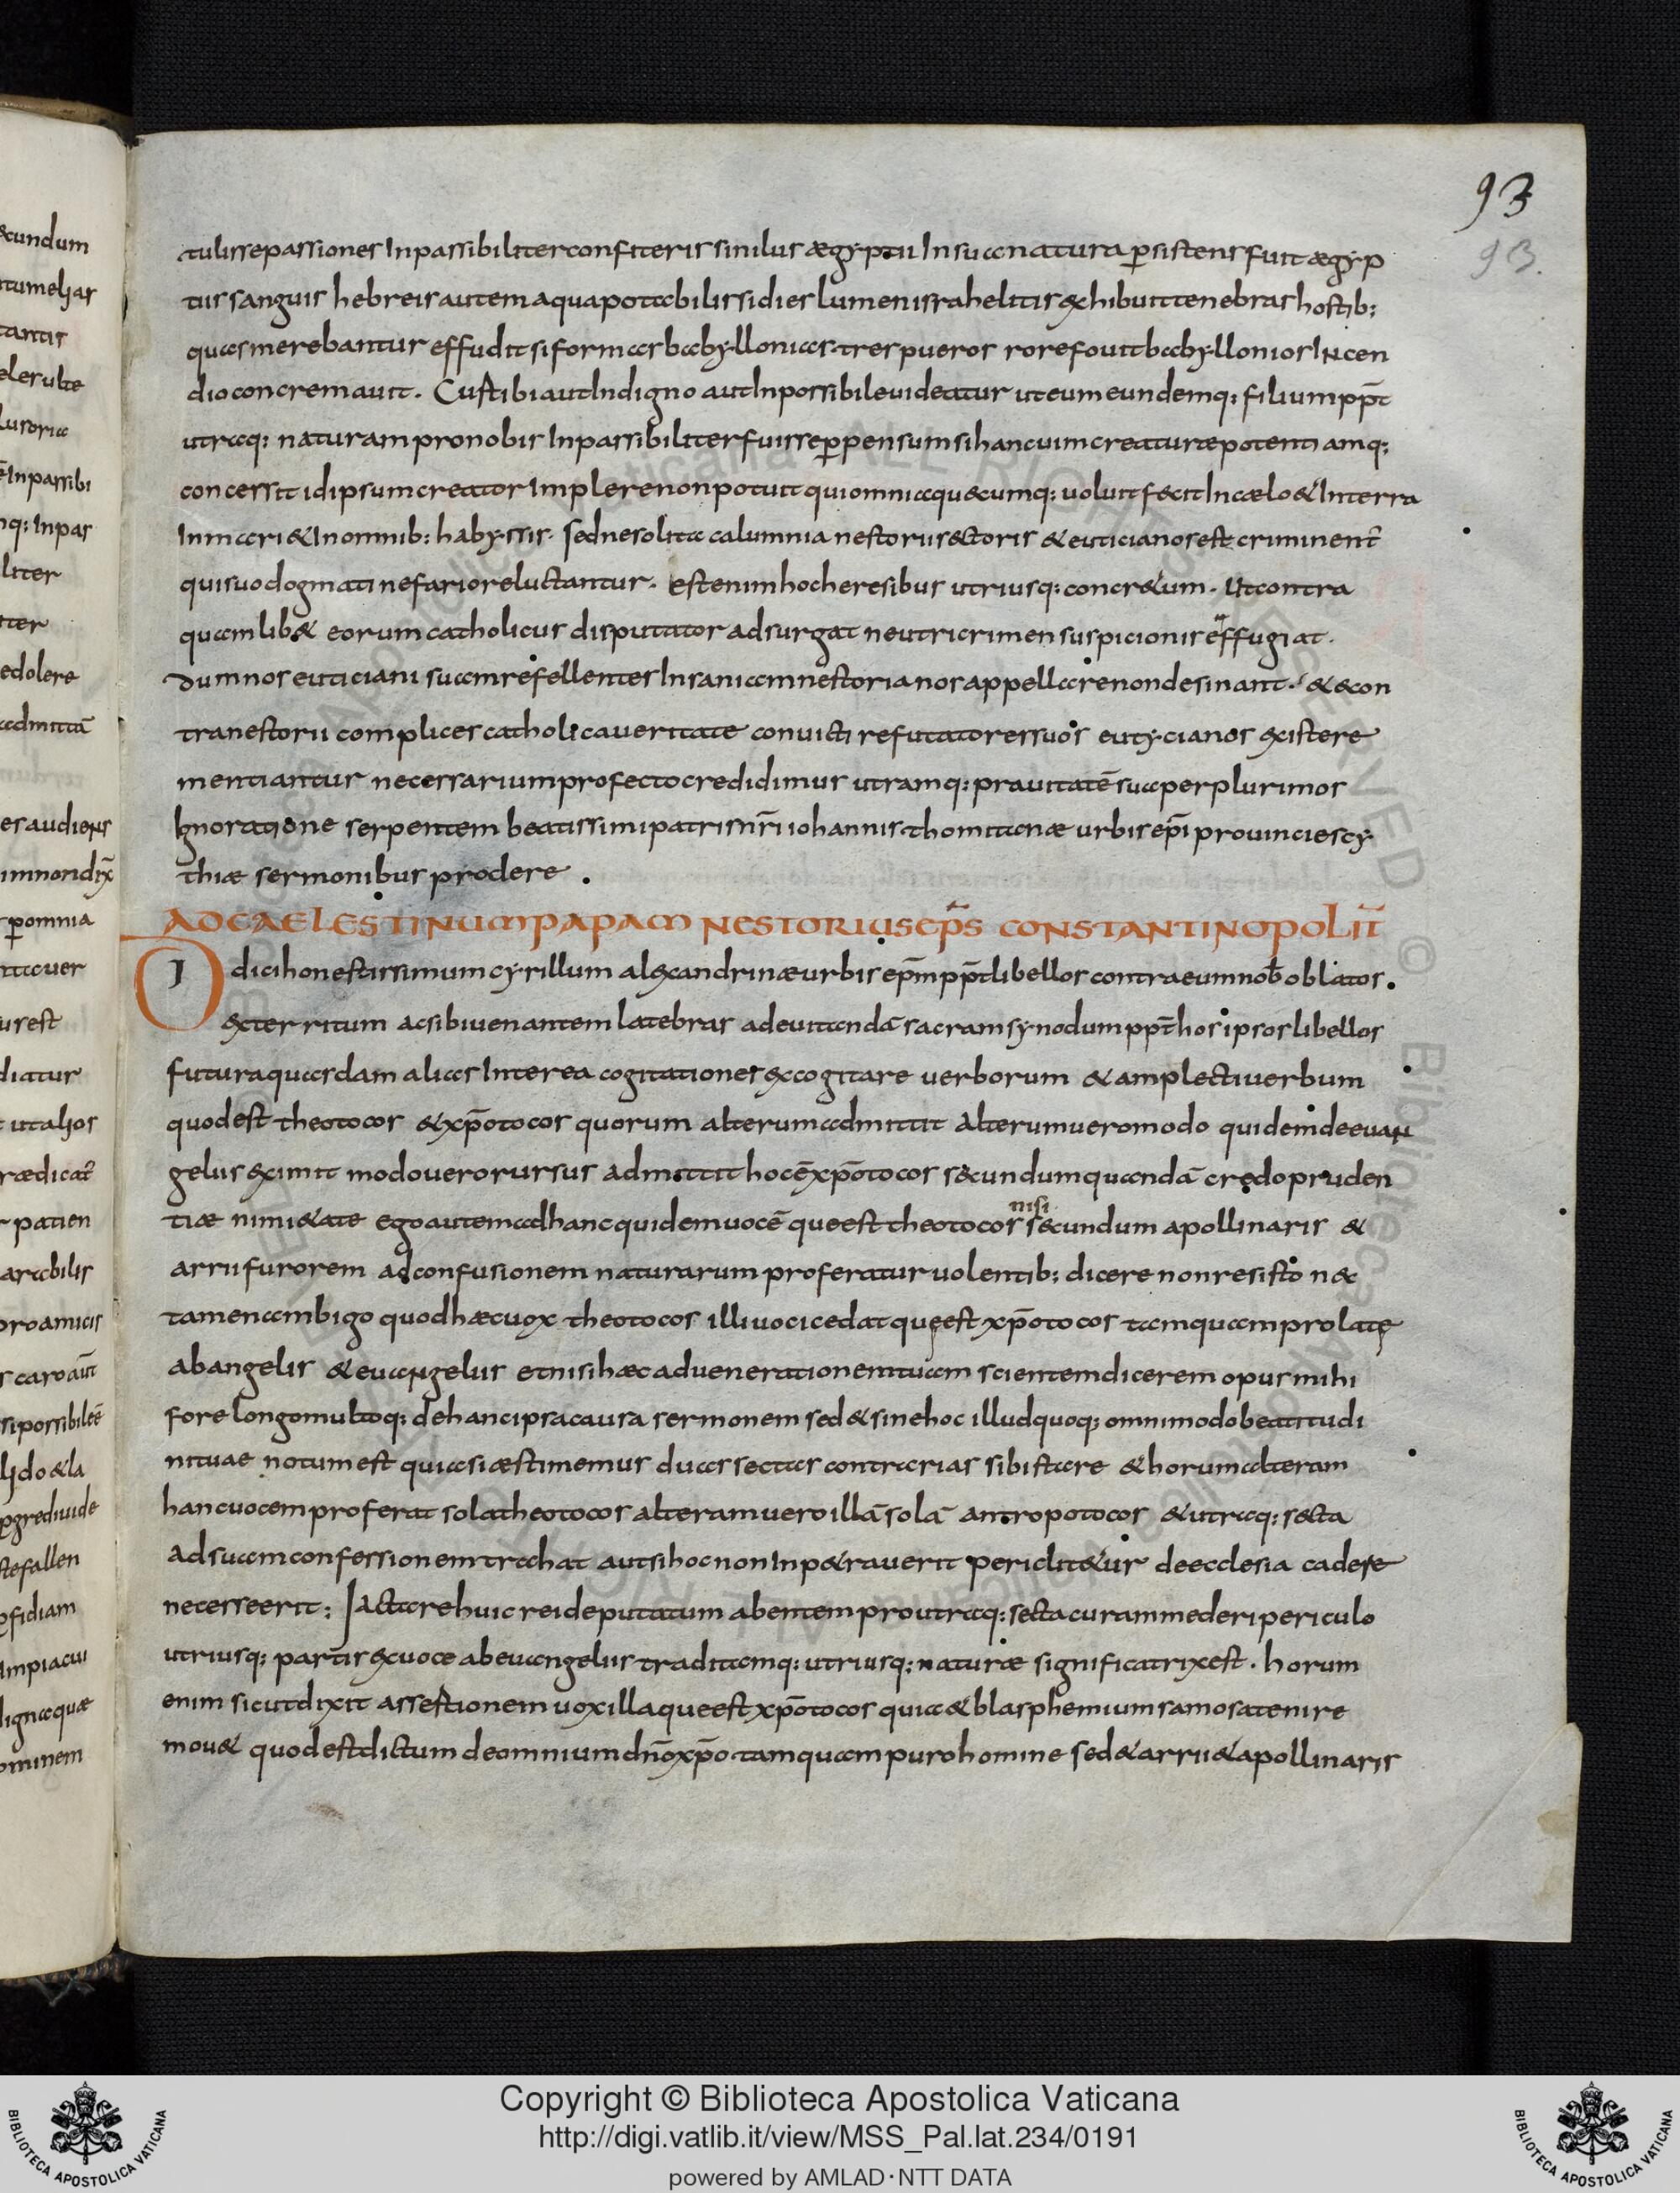 93
93.
tulisse passiones Inpassibiliter confiteris si nilus ægyptii In sua natura p̱sistens fuit ægyp
tiis sanguis hebreis autem aqua potabilis si dies lumen israhelitis exhibuit tenebras hostib;
quas merebantur effudit si fornicas babyllonicas tres pueros rore fouit babyllonios Incen
dio concremauit. Cur tibi aut Indigno aut Inpossibile uideatur ut eum eundemq; filium pp̄t
utraq; naturam pro nobis Inpassibiliter fuisse p̱pensum si hanc uim creaturæ potentiamq;
concessit id ipsum creator Implere non potuit qui omnia quæcumq; uoluit fecit In cælo & In terra
In mari & In omnib; habyssis. sed ne solita calumnia nestorii sectoris & euticianos est criminent̄
qui suo dogmati nefario reluctantur. est enim hoc heresibus utriusq; concretum. Ut contra
quamlib& eorum catholicus disputator adsurgat neutri crimen suspicionis effugiat.
dum nos euticiani suam refellentes Insaniam nestorianos appellare non desinant. & econ
tra nestorii complices catholica ueritate conuicti refutatores suos eutycianos existere
mentiantur necessarium profecto credidimus utramq; prauitatē sua per plurimos
Ignoratione serpentem beatissimi patris nr̄i iohannis thomitanæ urbis ep̄i prouincie scy
thiæ sermonibus prodere.
AD CAELESTINUM PAPAM NESTORIUS EP̄S CONSTANTINOPOLIT̄
Didici honestissimum cyrillum alexandrinæ urbis ep̄m pp̄t libellos contra eum nob̄ oblatos.
exterritum ac sibi uenantem latebras ad euitandā sacram synodum pp̄t hos ipsos libellos
futura quasdam alias Interea cogitationes excogitare uerborum & amplecti uerbum
quod est theotocos & xp̄otocos quorum alterum admittit alterum uero modo quidem de euan
geliis eximit modo uero rursus admittit hoc ē xp̄otocos secundum quandā credo pruden
tiæ nimi&ate ego autem ad hanc quidem uocē que est theotocos nisi secundum apollinaris &
arrii furorem ad confusionem naturarum proferatur uolentib; dicere non resisto nec
tamen ambigo quod hæc uox theotocos illi uoci cedat quę est xp̄otocos tamquam prolatę
ab angelis & euangeliis et nisi hæc ad uenerationem tuam scientem dicerem opus mihi
fore longo multoq; de hanc ipsa causa sermonem sed & sine hoc illud quoq; omnimodo beatitudi
ni tuae notum est quia si æstimemus duas sectas contrarias sibi stare & horum alteram
hanc uocem proferat sola theotocos alteram uero illā solā antropotocos & utraq; secta
ad suam confessionem trahat aut si hoc non Inp&rauerit periclit&ur de ecclesia cadere
necesse erit; Iactare huic rei deputatum abentem pro utraq; secta curam mederi periculo
utriusq; partis ex uoce ab euangeliis traditamq; utriusq; naturæ significatrix est. horum
enim sicut dixit assertionem uox illa que est xp̄otocos quia & blasphemium samosateni re
mou& quod est dictum de omnium dn̄o xp̄o tamquam puro homine sed & arrii & apollinaris
Copyright © Biblioteca Apostolica Vaticana
http://digi.vatlib.it/view/MSS_Pal.lat.234/0191
powered by AMLAD·NTT DATA